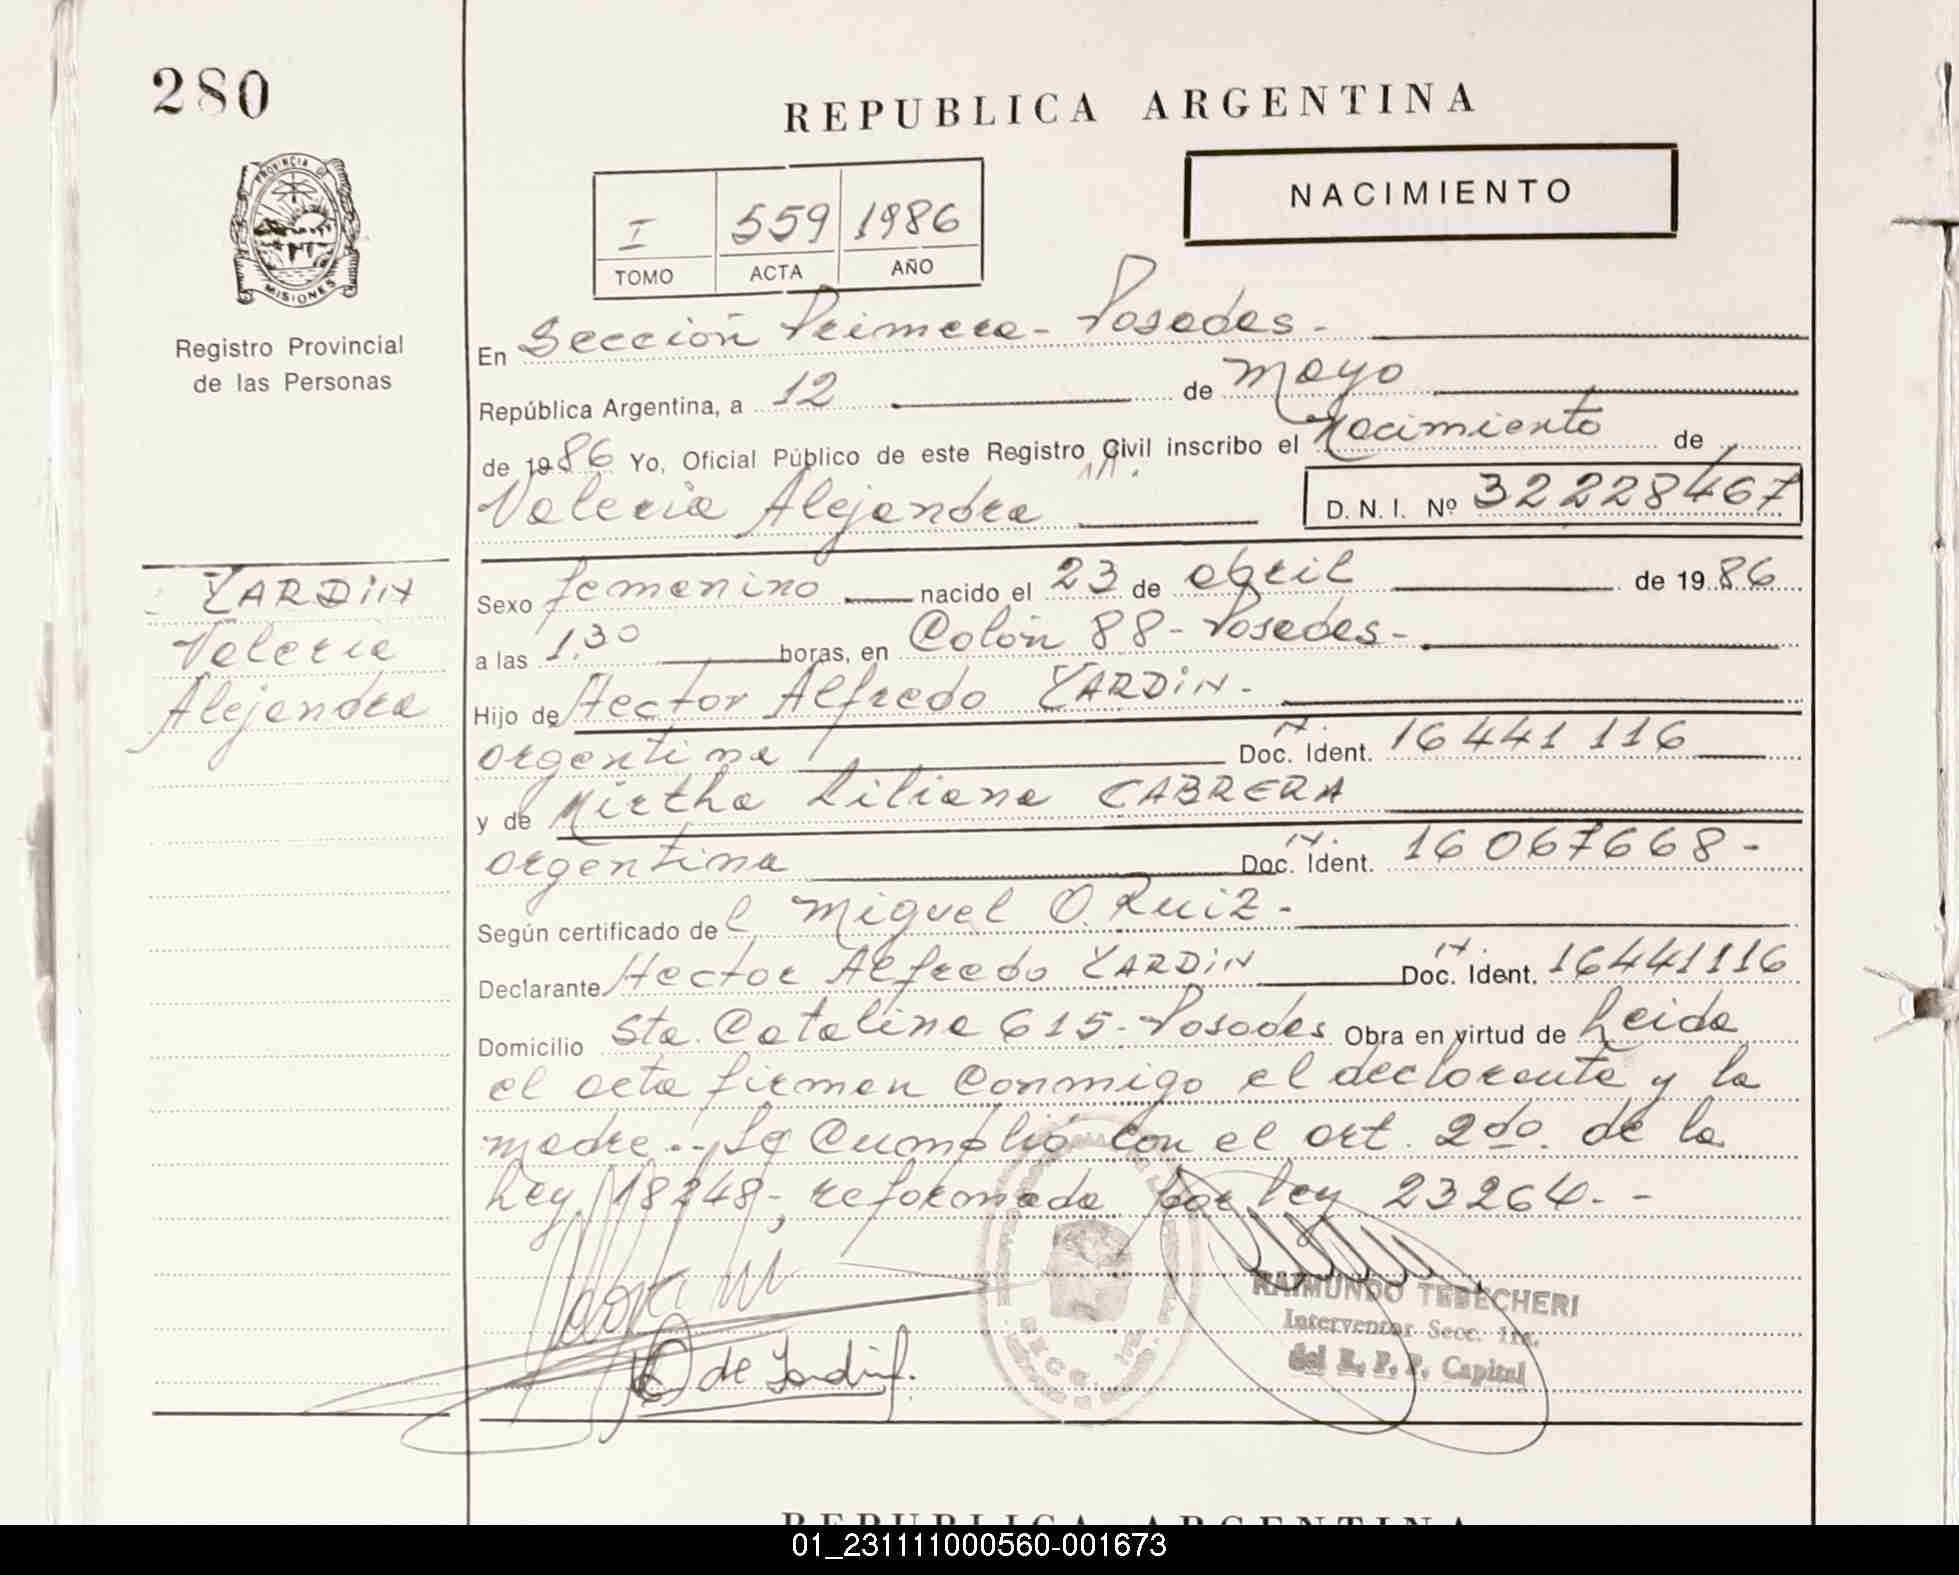 280
REPUBLICA ARGENTINA
NACIMIENTO
I 559 1986
TOMO ACTA AÑO
PROVINCIA DE MISIONES
Registro Provincial
de las Personas
En Sección Primera - Posadas -
República Argentina, a 12 de mayo
de 1986 Yo, Oficial Público de este Registro Civil inscribo el Nacimiento de
Valeria Alejandra D. N. I. Nº 32228467
YARDIN
Valeria
Alejandra
Sexo femenino nacido el 23 de abril de 1986
a las 1.30 horas, en Colón 88 - Posadas -
Hijo de Hector Alfredo YARDIN -
argentina Doc. Ident. 16441116
y de Mirtha Liliana CABRERA
argentina Doc. Ident. 16067668 -
Según certificado del Miguel O. Ruiz -
Declarante Hector Alfredo YARDIN Doc. Ident. 16441116
Domicilio Sta. Catalina 615 - Posadas Obra en virtud de Leida
el acta firman conmigo el declarante y la
madre.- Se Cumplió con el art. 2do. de la
Ley 18248-, reformada por ley 23264 - -
RAIMUNDO TEBECHERI
Interventor Secc. 1ra.
del R. P. P. Capital
de Yardin.
REPUBLICA ARGENTINA
01_231111000560-001673